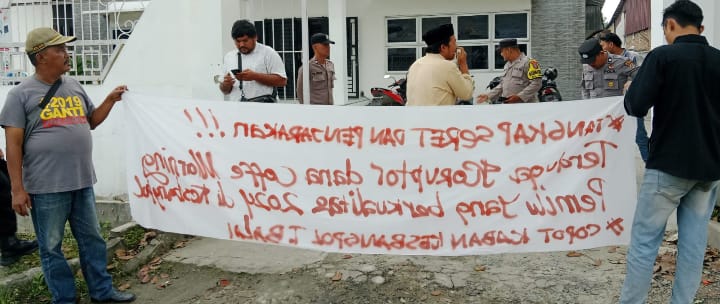 2019
GANTI
#TANGKAP SERET DAN PENJARAKAN !!!
Terduga Koruptor dana Coffe Morning
Pemilu yang berkualitas 2024 di Kesbangpol
#COPOT KABAN KESBANGPOL T.BALAI